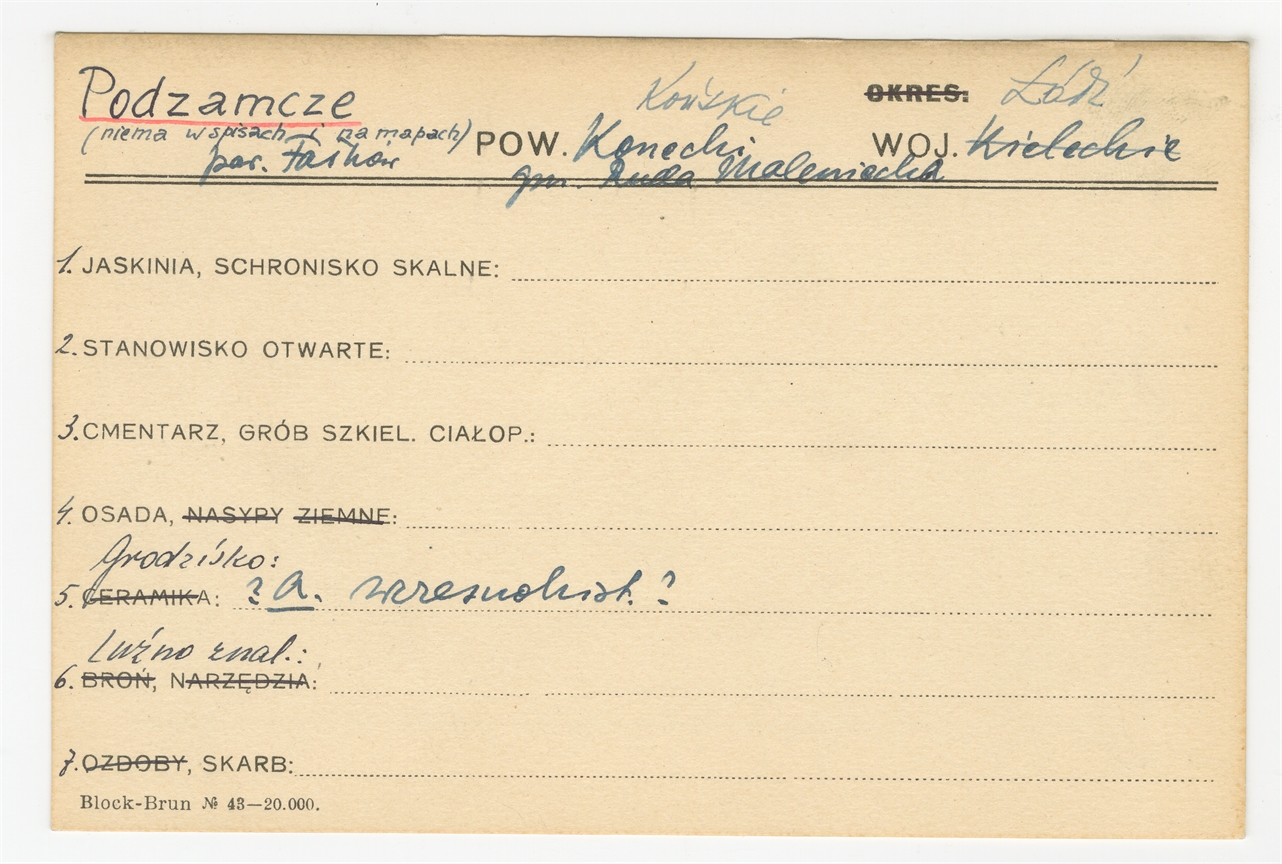 Podzamcze Końskie OKRES: Łódź
(niema w spisach i na mapach) POW. Konecki WOJ. Kieleckie
par. Fałków gm. Ruda Maleniecka
1. JASKINIA, SCHRONISKO SKALNE:
2. STANOWISKO OTWARTE:
3. CMENTARZ, GRÓB SZKIEL. CIAŁOP.:
4. OSADA, NASYPY ZIEMNE:
Grodzisko:
5. CERAMIKA: ? A. wczesnohist. ?
Luźno znal.:
6. BROŃ, NARZĘDZIA:
7. OZDOBY, SKARB:
Block-Brun № 43—20.000.